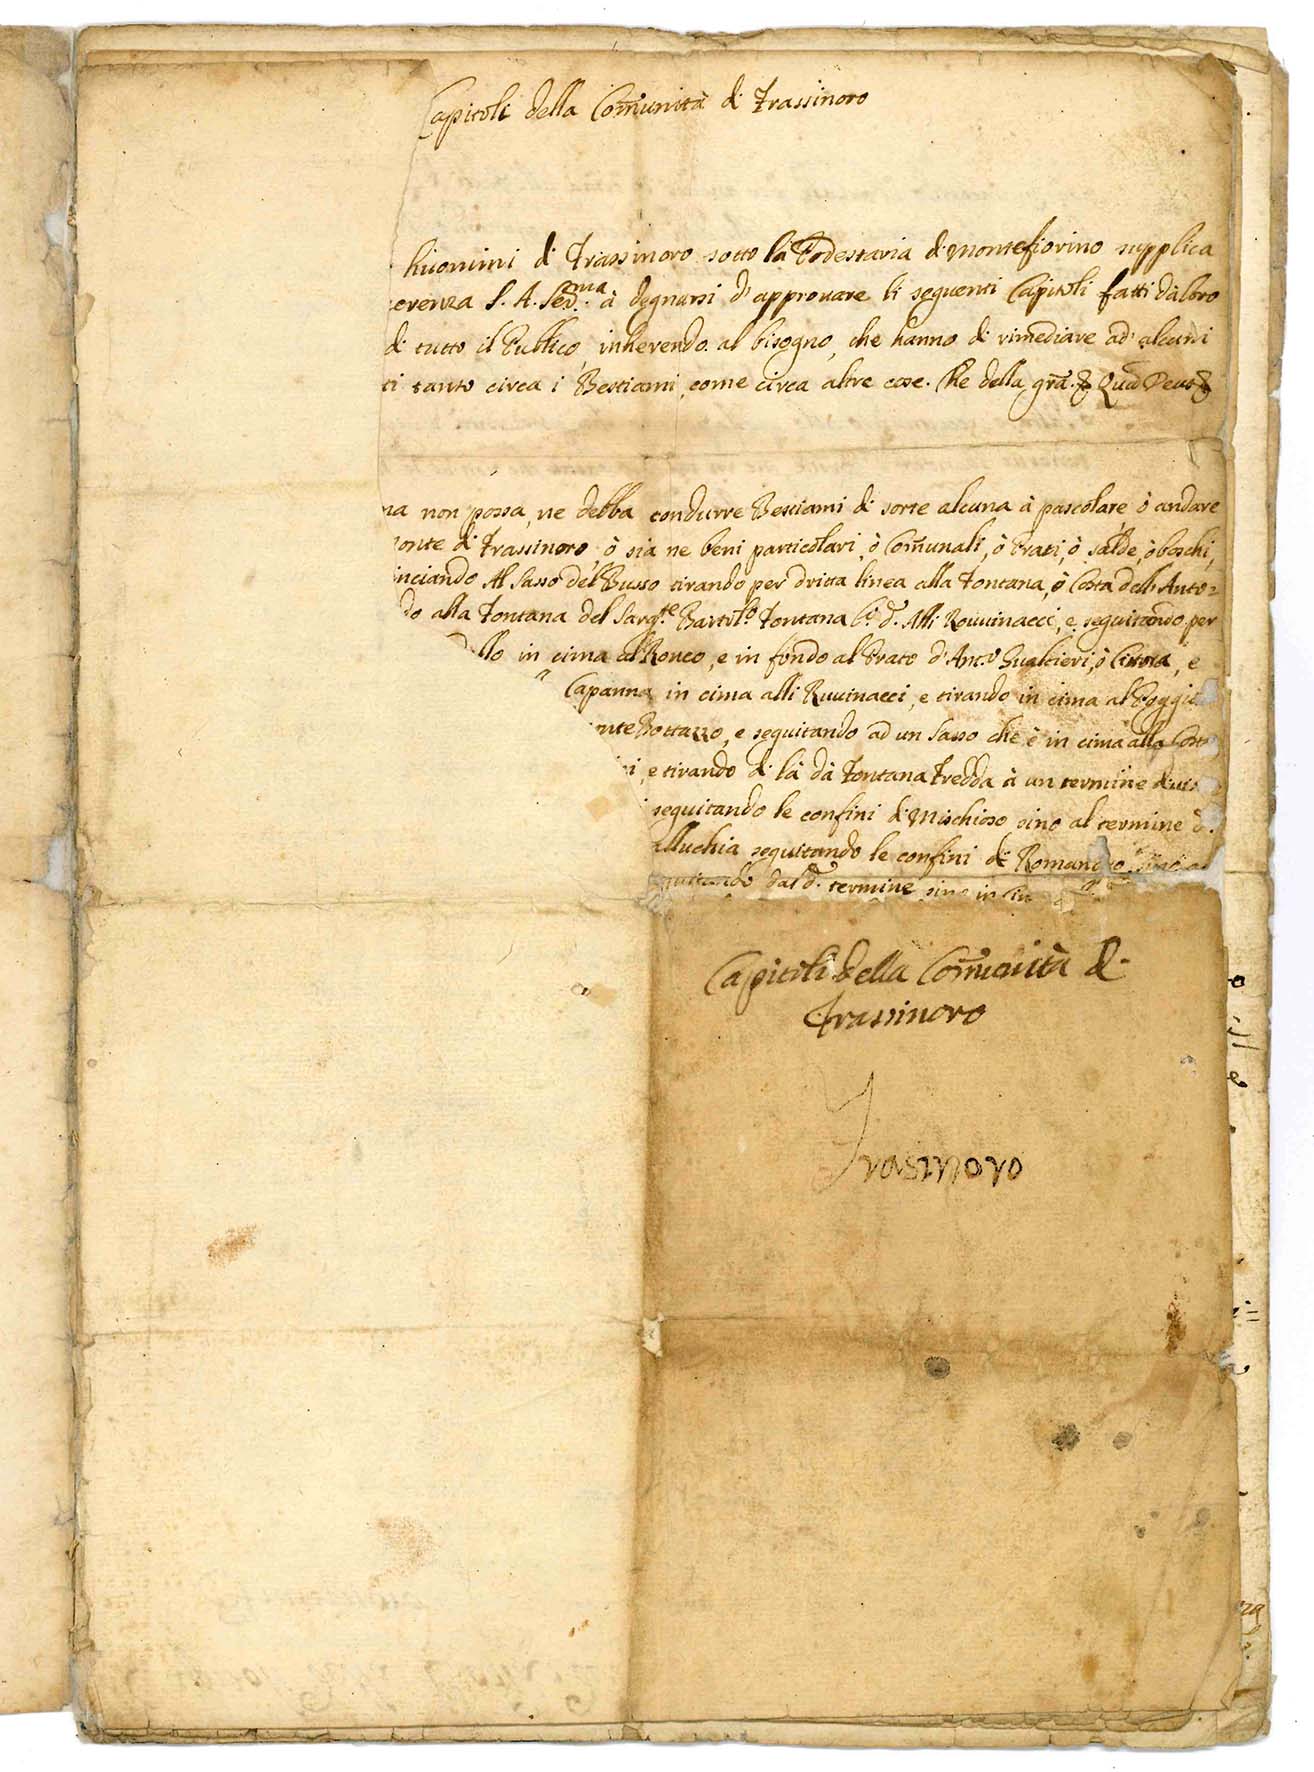 Capitoli della Com̃unità di Frassinoro
huomini di Frassinoro sotto la Podestaria di Montefiorino supplica
erenza S. A. Ser.ma à degnarsi d'approuare li seguenti Capitoli fatti dà loro
di tutto il Publico, inherendo al bisogno, che hanno di rimediare ad' alcuni
ti tanto circa i Bestiami, come circa altre cose. Che della gr̃a. & Quã Deus &
na non possa, ne debba condurre Bestiami di sorte alcuna à pascolare ò andare
onte di Frassinoro, ò sia ne beni particolari, ò Com̃unali, ò Prati, ò salde, ò boschi,
inciando Al Sasso del Busso tirando per dritta linea alla Fontana, ò Costa dell' Anto=
do alla Fontana del Sarg.te Bartol.o Fontana l.o d. Alli Rouuinacci, e seguitando per
llo in cima al Ronco, e in fondo al Prato d'Ant.o Gualtieri, ò e
Capanna in cima alli Ruuinacci, e tirando in cima al Poggio
nte Bottazzo, e seguitando ad un Sasso che è in cima alla Costa
i, e tirando di là dà Fontana Fredda à un termine
seguitando le confini di Mischioso sino al termine d.
lluchia seguitando le confini di Romanoro sino al
guitando dal d.o termine sino in cim
Capitoli della Com̃unità di
Frassinoro
Frasinoro